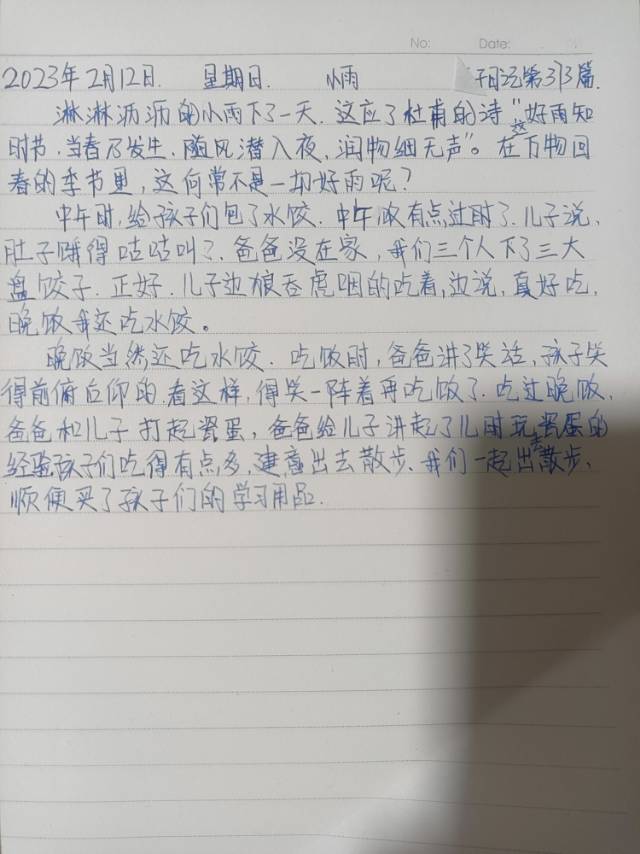 No: Date:
2023年2月12日. 星期日. 小雨 子日记第313篇.
淋淋沥沥的小雨下了一天. 这应了杜甫的诗"好雨知
时节,当春乃发生.随风潜入夜,润物细无声"。在这万物回
春的季节里,这何常不是一切好雨呢?
中午时,给孩子们包了水饺. 中午饭有点过时了.儿子说,
肚子饿得咕咕叫?.爸爸没在家,我们三个人下了三大
盘饺子.正好.儿子边狼吞虎咽的吃着,边说,真好吃,
晚饭我还吃水饺。
晚饭当然还吃水饺. 吃饭时,爸爸讲了笑话,孩子笑
得前俯后仰的.看这样,得笑一阵着再吃饭了.吃过晚饭,
爸爸和儿子打起瓷蛋,爸爸给儿子讲起了儿时玩瓷蛋的
经验孩子们吃得有点多,建意出去散步.我们一起出去散步,
顺便买了孩子们的学习用品.